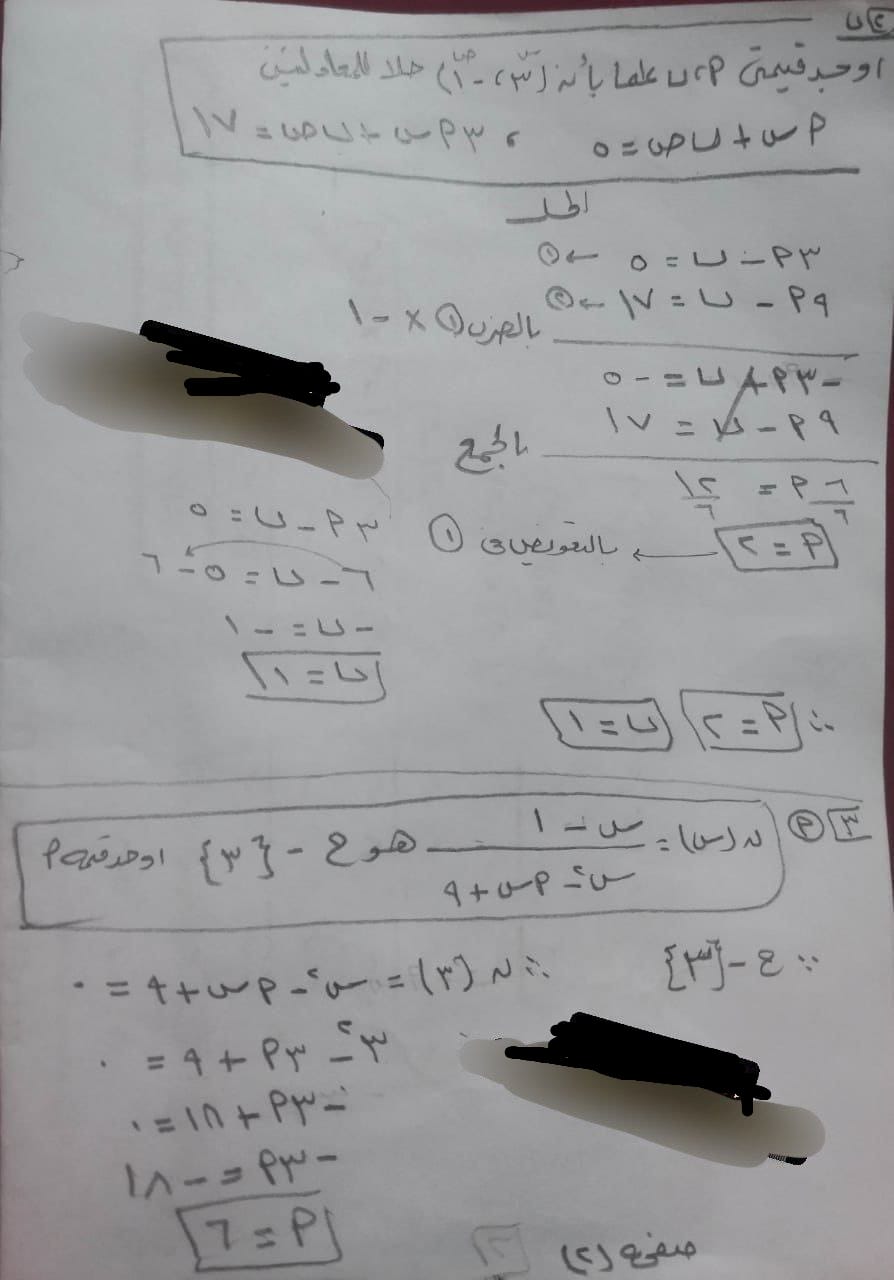 ٢ ب
اوجد قيمتى م، ب علما بأن (٣، -١) حلا للمعادلتين
س ص
م س + ب ص = ٥ ، ٣ م س + ب ص = ١٧
الحل
٣م - ب = ٥ ← ①
٩م - ب = ١٧ ← ②
بالضرب ① × -١
-٣م + ب = -٥
٩م - ب = ١٧
بالجمع
٦م/٦ = ١٢/٦
م = ٢ ← بالتعويض فى ①
٣م - ب = ٥
٦ - ب = ٥ - ٦
-ب = -١
ب = ١
∴ م = ٢ ب = ١
٣ م ن(س) = (س - ١)/(س² - م س + ٩) هو ح - {٣} اوجد قيمة م
∵ ح - {٣} ∴ ن(٣) = س² - م س + ٩ = ٠
٣² - ٣م + ٩ = ٠
-٣م + ١٨ = ٠
-٣م = -١٨
م = ٦
صفحة (٢)